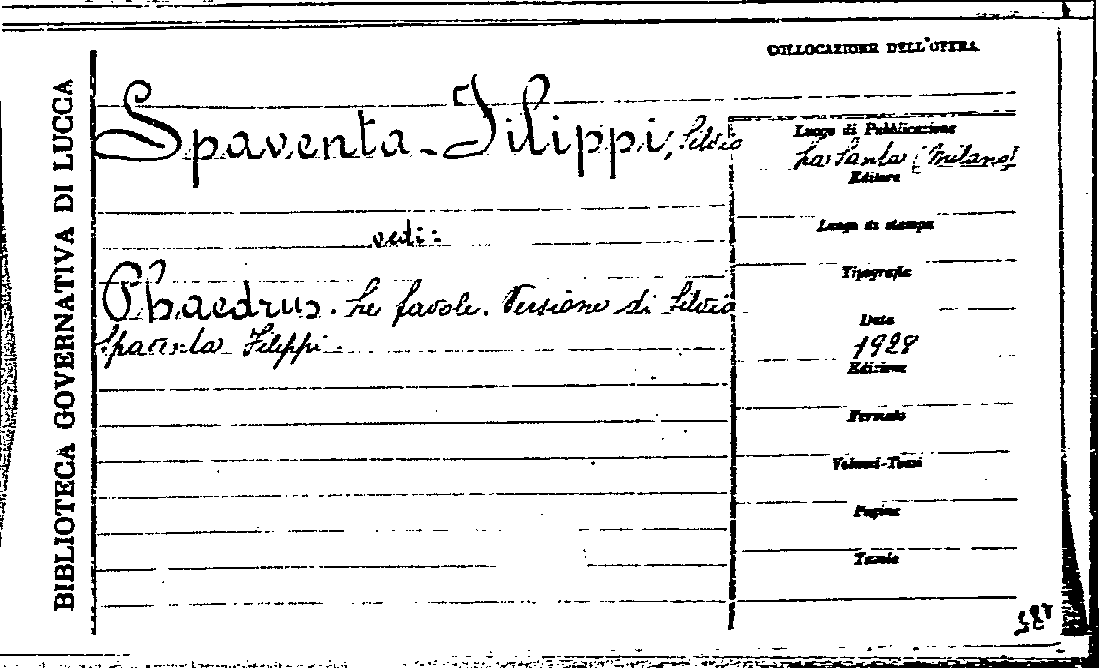 BIBLIOTECA GOVERNATIVA DI LUCCA
COLLOCAZIONE DELL'OPERA
Spaventa-Filippi, Silvio
vedi:
Phaedrus. Le favole. Versione di Silvio
Spaventa Filippi.
Luogo di Pubblicazione
La Santa (Milano)
Editore
Luogo di stampa
Tipografia
Data
1928
Edizione
Formato
Volumi-Tomi
Pagine
Tavole